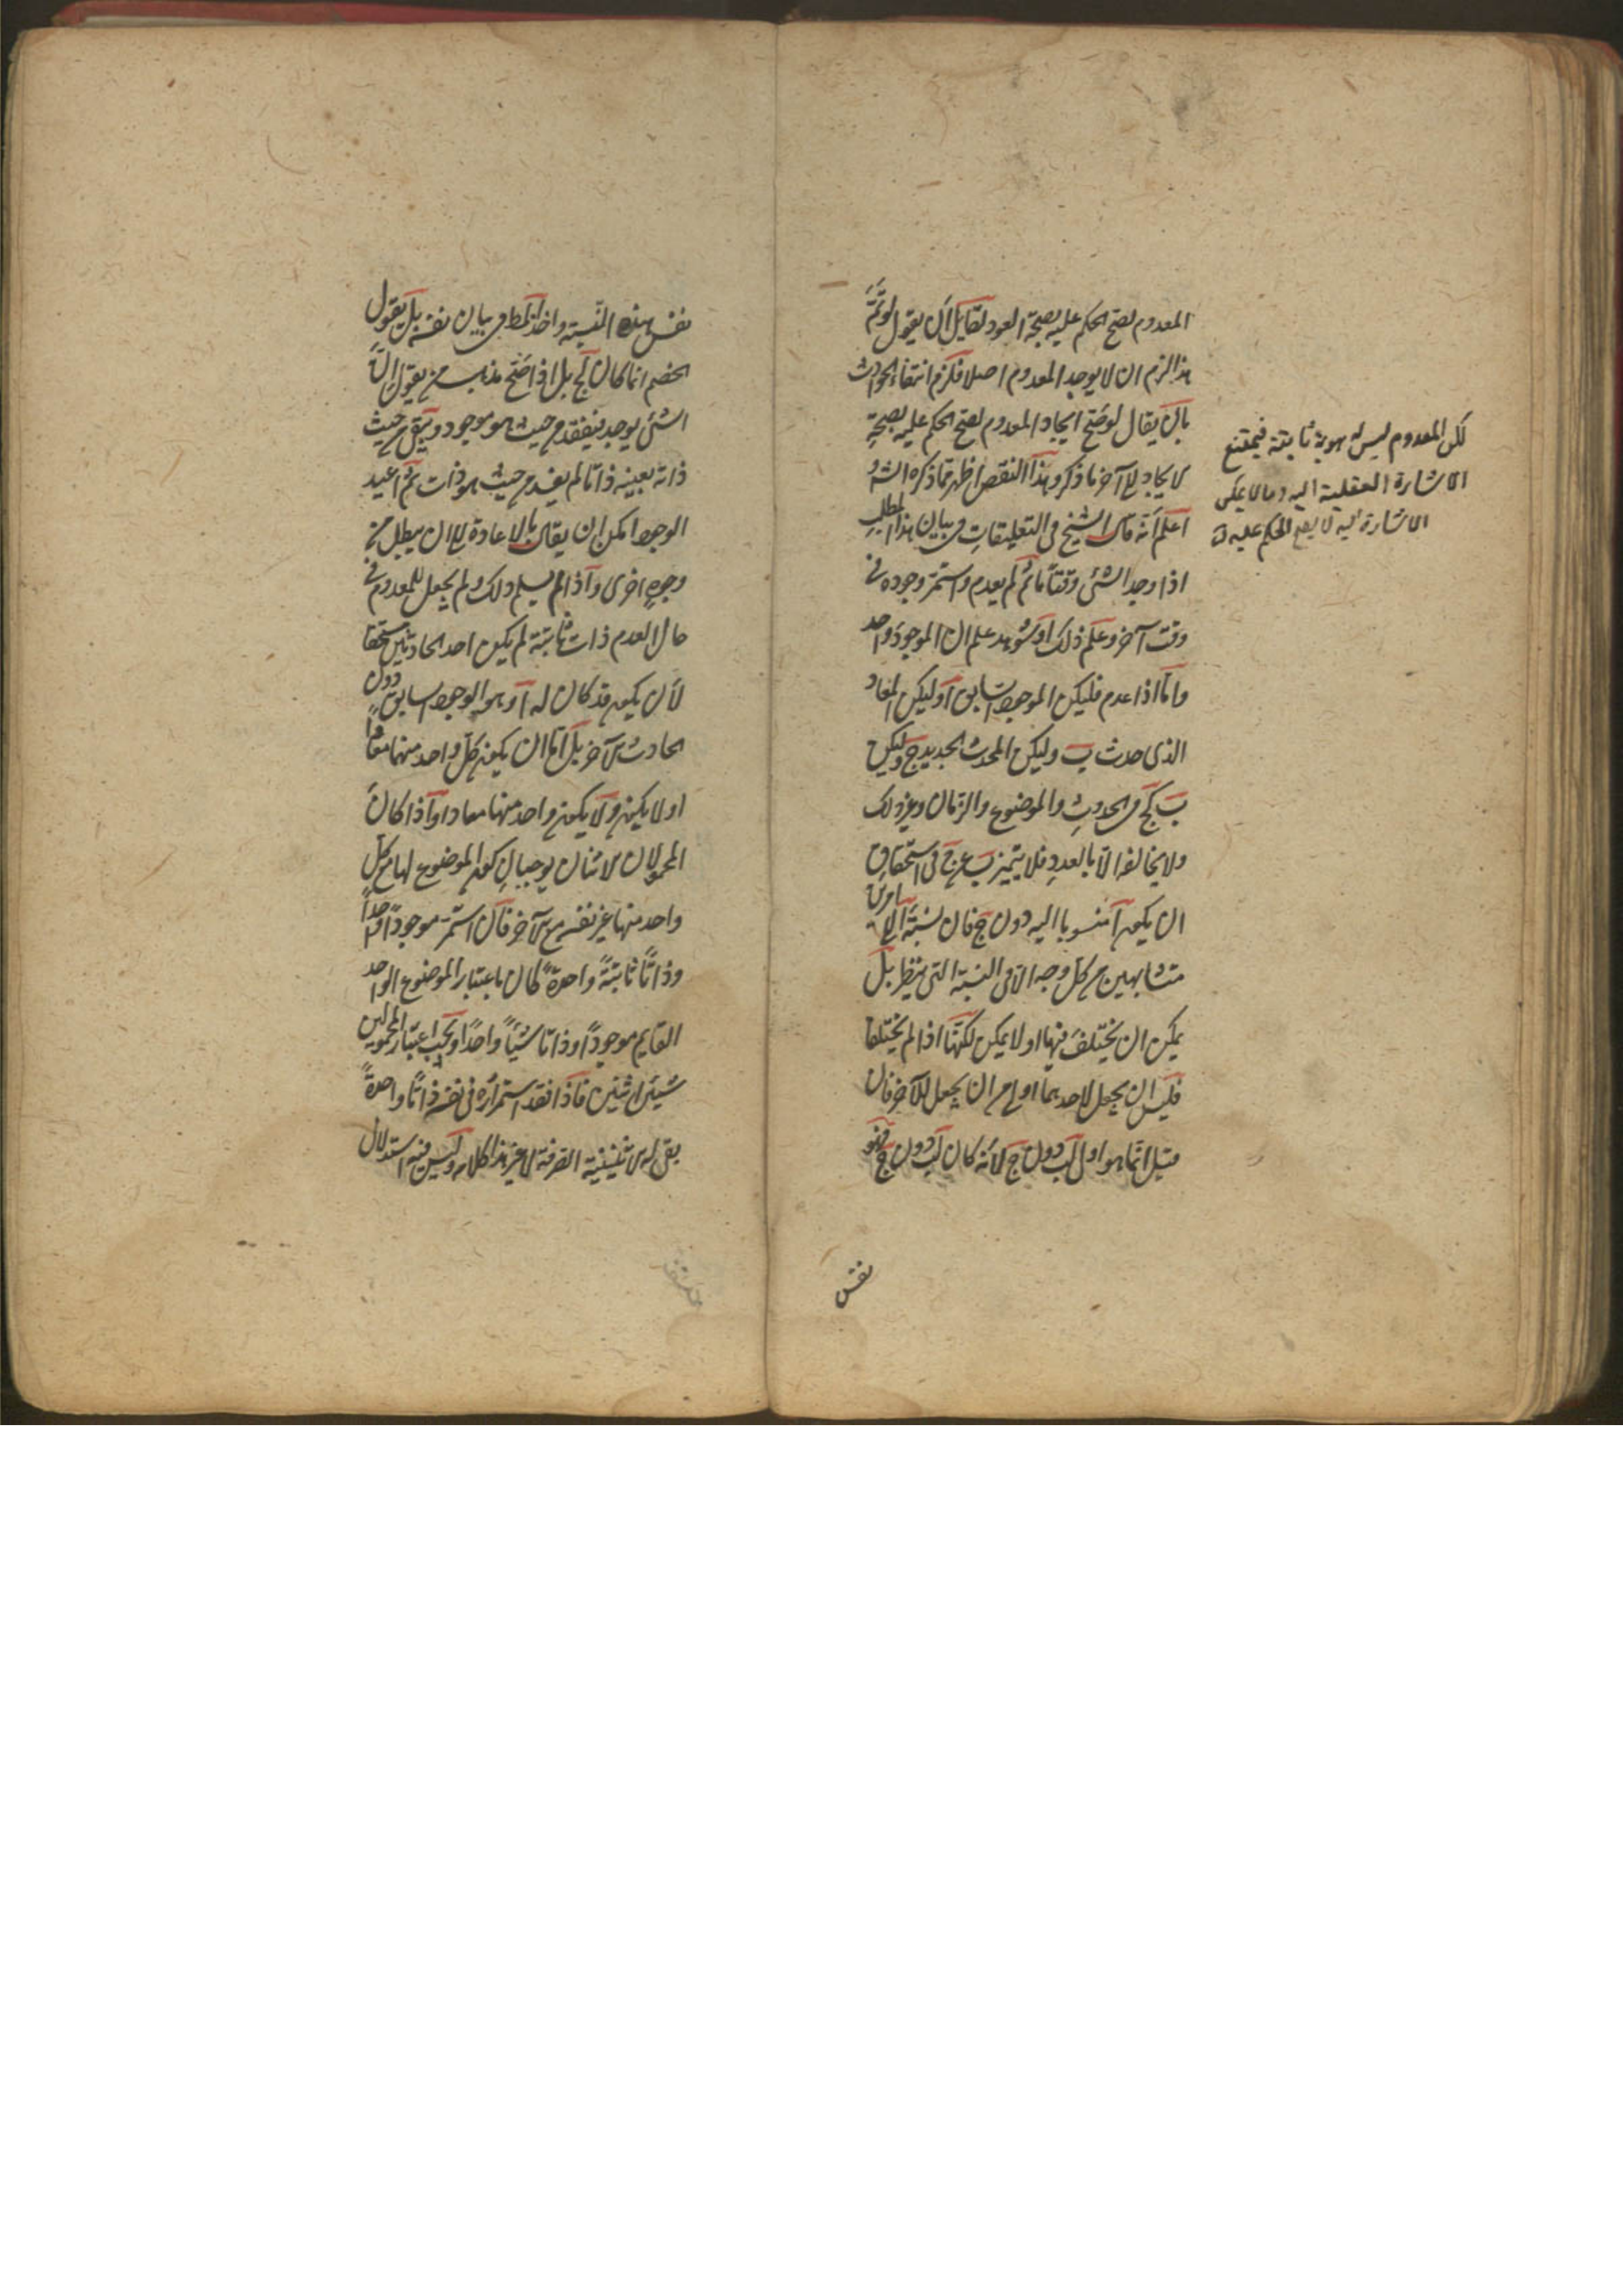 المعدوم لصح الحكم عليه بصحة العود لقايل ان يقول لو تم
هذا لزم ان لا يوجد المعدوم اصلا فلزم انتفاء الحوادث
بان يقال لو صح ايجاد المعدوم لصح الحكم عليه بصحة
الايجاد الى آخر ما ذكر وهذا النقض اظهر مما ذكره الش
اعلم انه قال الشيخ في التعليقات في بيان هذا المطلب
اذا وجد الشئ وقتا ما ثم لم يعدم واستمر وجوده في
وقت آخر وعلم ذلك او شوهد علم ان الموجود واحد
واما اذا عدم فليكن الموجود السابق آ وليكن المعاد
الذى حدث ب وليكن المحدث الجديد ج وليكن
ب كج في الحدوث والموضوع والزمان وغير ذلك
ولا يخالفه الا بالعدد فلا يتميز ب عن ج في استحقاق
ان يكون آ منسوبا اليه دون ج فان نسبة آ الى امرين
متشابهين من كل وجه الا في النسبة التى ينظر بل
يمكن ان يختلف فيها او لا يمكن لكنهما اذا لم يختلفا
فليس ان يجعل لاحدهما اولى من ان يجعل للآخر فان
قيل انما هو اولى لب دون ج لانه كان لب دون ج فهو
نفس
لكن المعدوم ليس له هوية ثابتة فيمتنع
الاشارة العقلية اليه وما لا يمكن
الاشارة اليه لا يصح الحكم عليه
نفس هذه النسبة واخذ المط في بيان نفسه بل يقول
الخصم انما كان لج بل اذا صح مذهب من يقول ان
الشئ يوجد فيفقد من حيث هو موجود ويبقى من حيث
ذاته بعينه ذاتا لم يفقد من حيث هو ذات ثم اعيد
الوجود امكن ان يقال بالاعادة الى ان يبطل من
وجوه اخرى واذا لم يسلم ذلك ولم يجعل للمعدوم في
حال العدم ذات ثابتة لم يكن احد الحادثين مستحقا
لان يكون قد كان له آ وهو الوجود السابق دون
الحادث الآخر بل اما ان يكون كل واحد منهما معادا
او لا يكون ولا يكون واحد منهما معادا واذا كان
المحمولان الاثنان يوجبان كون الموضوع لهما مع كل
واحد منهما غير نفسه مع الآخر فان استمر موجودا واحدا
وذاتا ثابتة واحدة كان باعتبار الموضوع الواحد
القايم موجودا وذاتا شيئا واحدا وبحسب اعتبار المحمولين
شيئين اثنين فاذا فقد استمراره في نفسه ذاتا واحدة
بقى له الاثنينية الصرفة لا غير هذا كلامه وليس فيه استدلال